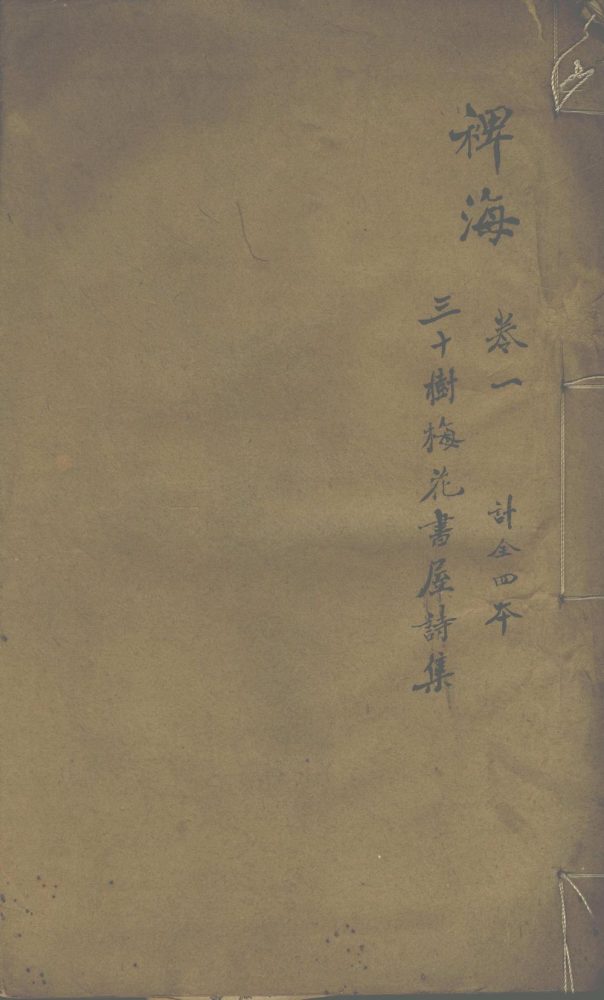 裨海 卷一 計全四本
三十樹梅花書屋詩集